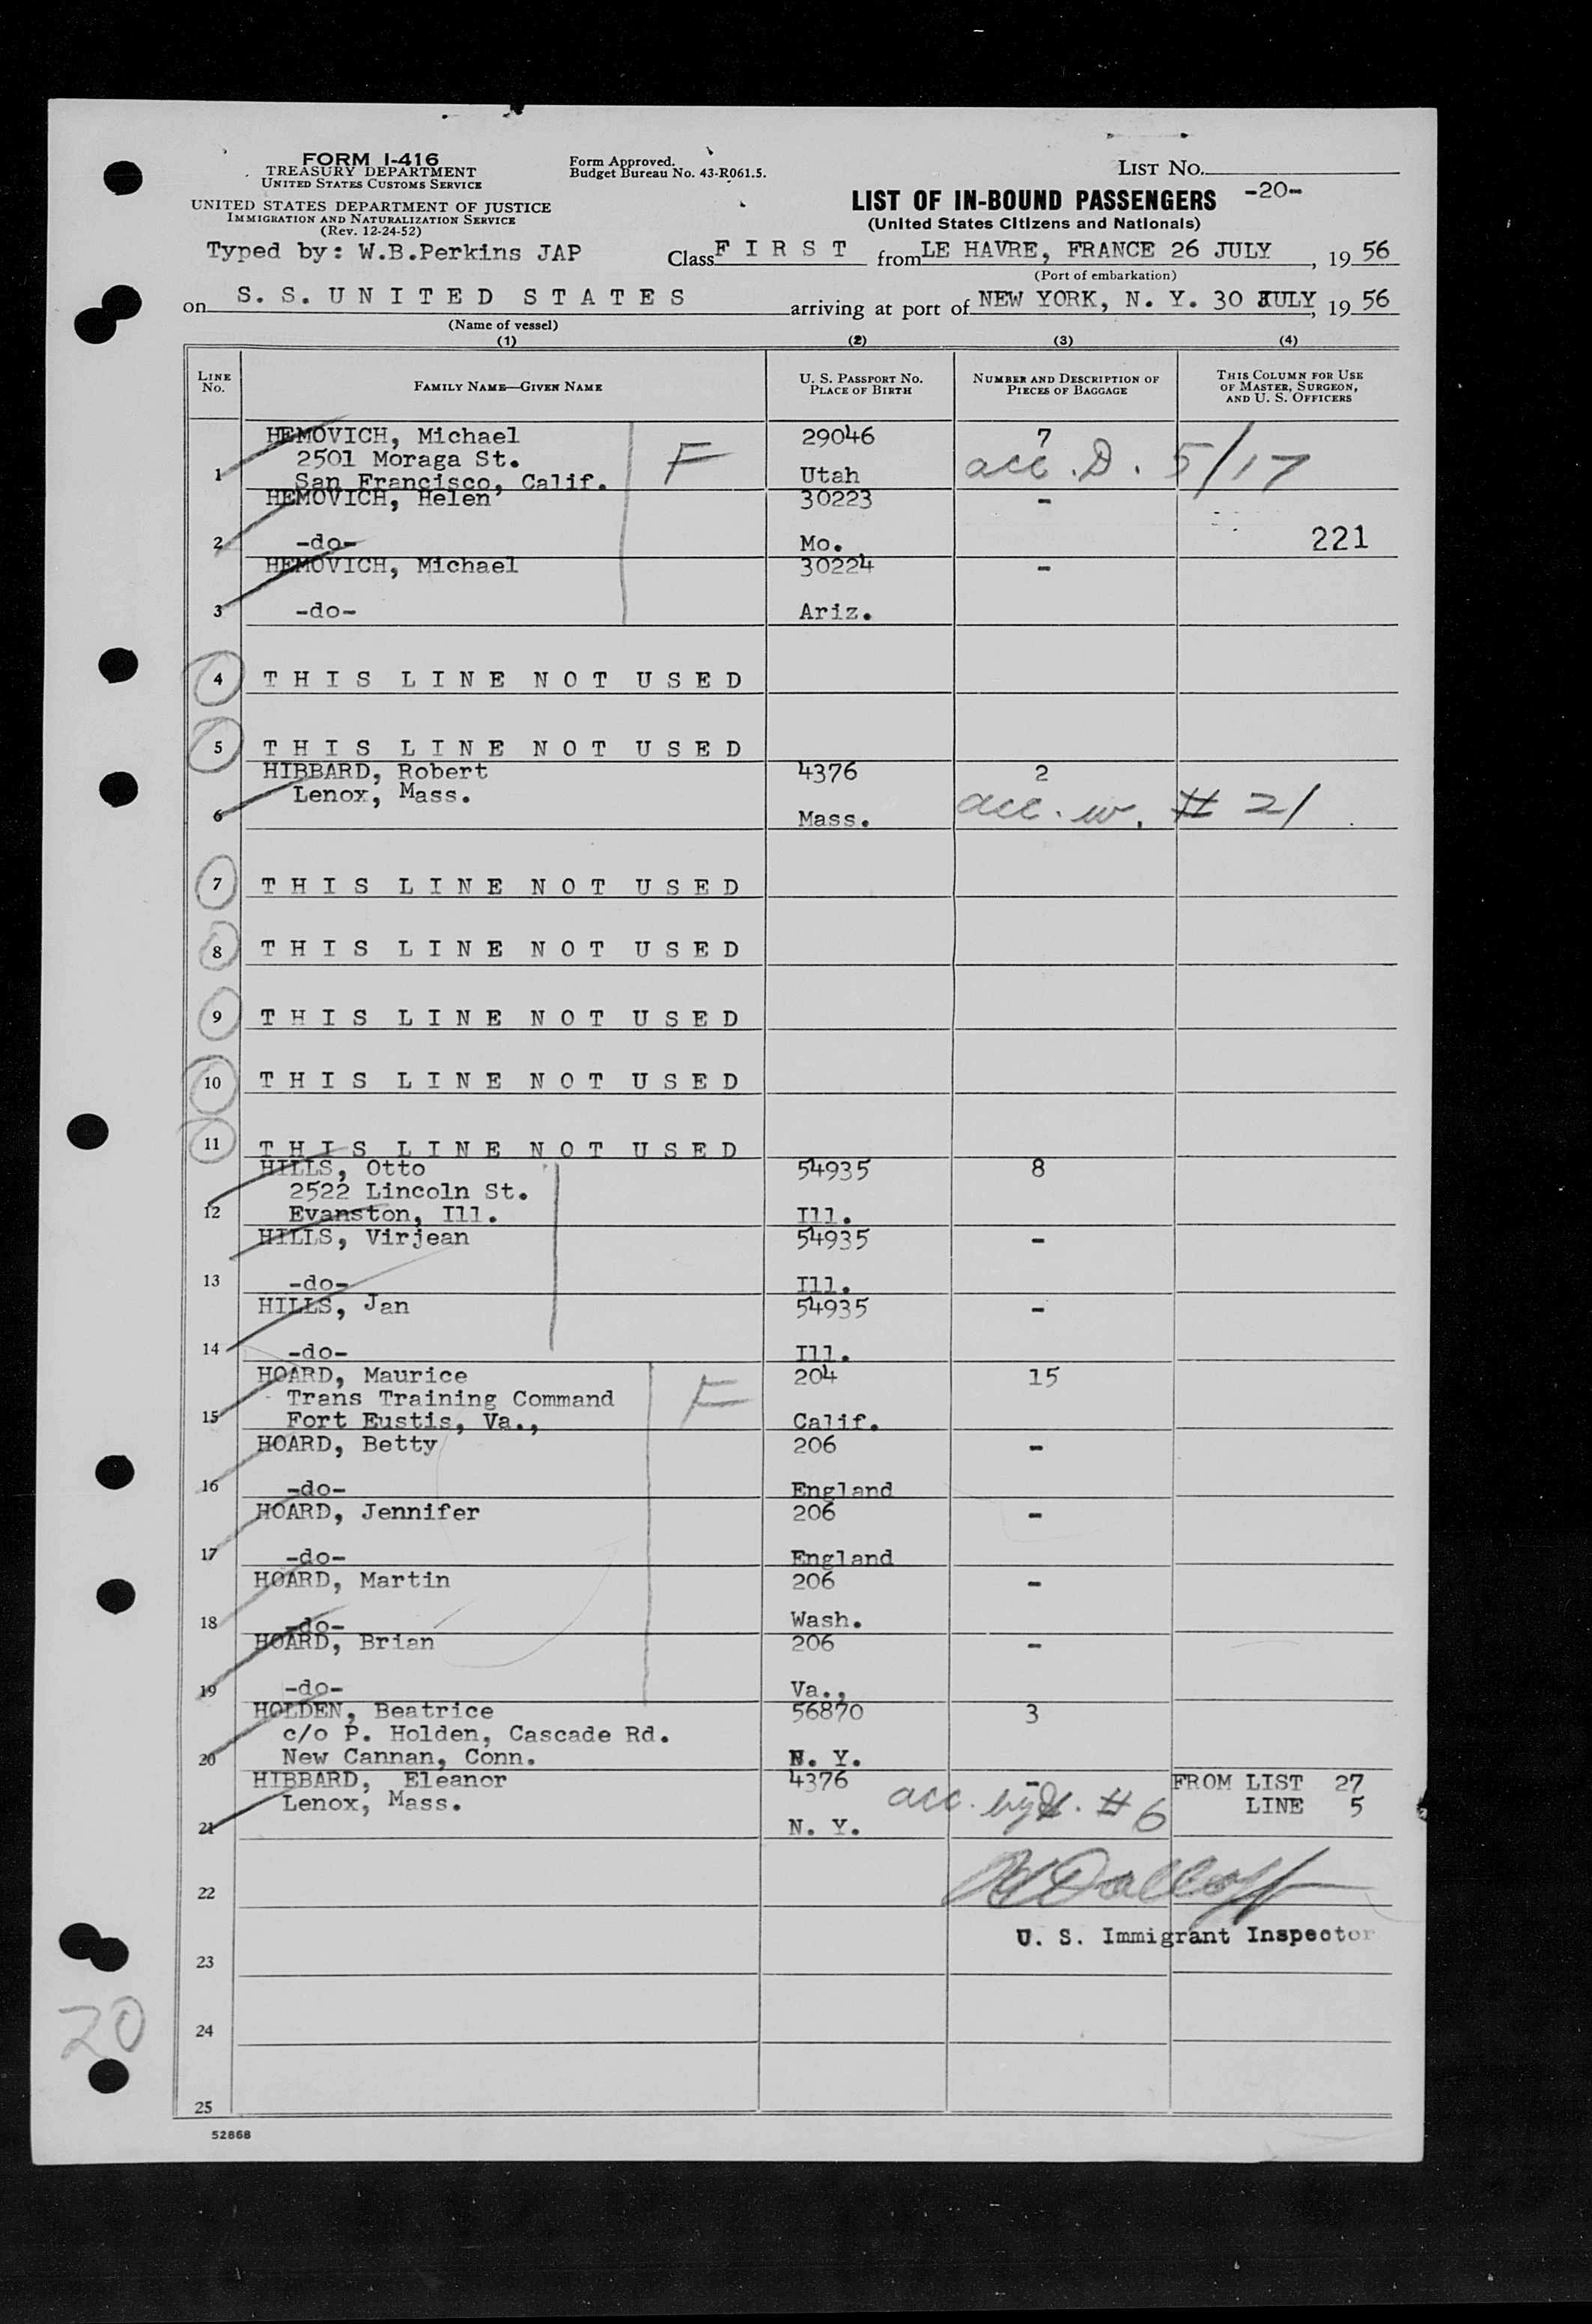 FORM I-416
TREASURY DEPARTMENT
UNITED STATES CUSTOMS SERVICE
UNITED STATES DEPARTMENT OF JUSTICE
IMMIGRATION AND NATURALIZATION SERVICE
(Rev. 12-24-52)
Form Approved.
Budget Bureau No. 43-R061.5.
LIST NO.
-20-
LIST OF IN-BOUND PASSENGERS
(United States Citizens and Nationals)
Typed by: W.B.Perkins JAP
Class F I R S T from LE HAVRE, FRANCE 26 JULY, 19 56
(Port of embarkation)
on S. S. U N I T E D S T A T E S arriving at port of NEW YORK, N. Y. 30 JULY, 19 56
(Name of vessel)
(1) (2) (3) (4)
LINE NO. FAMILY NAME—GIVEN NAME U. S. PASSPORT NO. PLACE OF BIRTH NUMBER AND DESCRIPTION OF PIECES OF BAGGAGE THIS COLUMN FOR USE OF MASTER, SURGEON, AND U. S. OFFICERS
HEMOVICH, Michael 29046 7
2501 Moraga St. F acc. D. 5/17
1 San Francisco, Calif. Utah
HEMOVICH, Helen 30223 -
2 -do- Mo. 221
HEMOVICH, Michael 30224 -
3 -do- Ariz.
4 T H I S L I N E N O T U S E D
5 T H I S L I N E N O T U S E D
HIBBARD, Robert 4376 2
Lenox, Mass. acc. w. # 21
6 Mass.
7 T H I S L I N E N O T U S E D
8 T H I S L I N E N O T U S E D
9 T H I S L I N E N O T U S E D
10 T H I S L I N E N O T U S E D
11 T H I S L I N E N O T U S E D
HILLS, Otto 54935 8
2522 Lincoln St.
12 Evanston, Ill. Ill.
HILLS, Virjean 54935 -
13 -do- Ill.
HILLS, Jan 54935 -
14 -do- Ill.
HOARD, Maurice 204 15
Trans Training Command F
15 Fort Eustis, Va., Calif.
HOARD, Betty 206 -
16 -do- England
HOARD, Jennifer 206 -
17 -do- England
HOARD, Martin 206 -
18 -do- Wash.
HOARD, Brian 206 -
19 -do- Va.,
HOLDEN, Beatrice 56870 3
c/o P. Holden, Cascade Rd.
20 New Cannan, Conn. N. Y.
HIBBARD, Eleanor 4376 - FROM LIST 27
Lenox, Mass. acc. # 6 LINE 5
21 N. Y.
22
U. S. Immigrant Inspector
23
24
20
25
52868